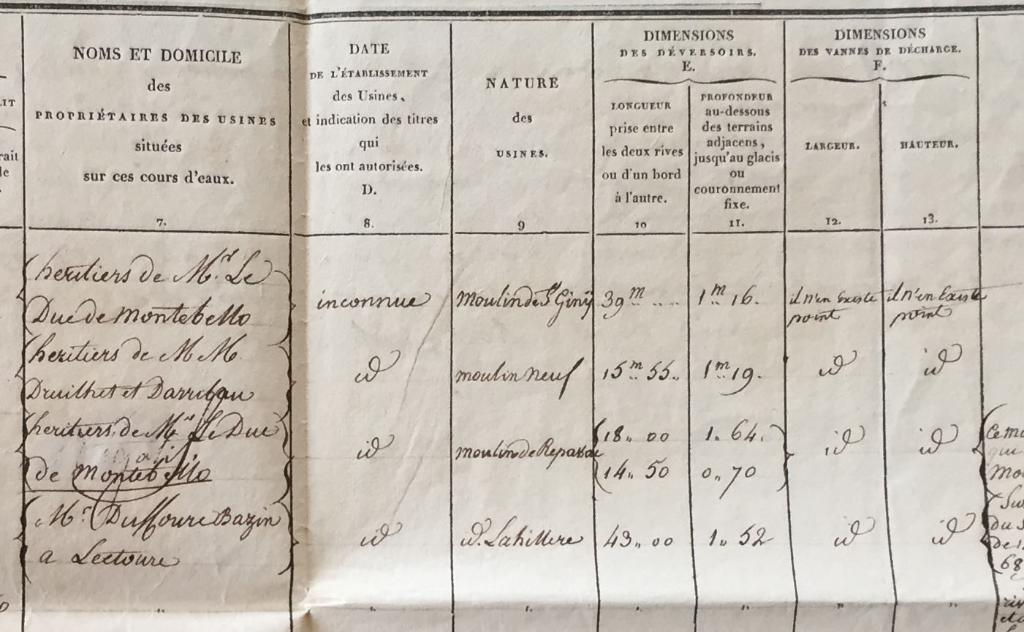 NOMS ET DOMICILE
des
PROPRIÉTAIRES DES USINES
situées
sur ces cours d'eaux.
7.
DATE
DE L'ÉTABLISSEMENT
des Usines,
et indication des titres
qui
les ont autorisées.
D.
8.
NATURE
des
USINES.
9
DIMENSIONS
DES DÉVERSOIRS.
E.
LONGUEUR
prise entre
les deux rives
ou d'un bord
à l'autre.
10
PROFONDEUR
au-dessous
des terrains
adjacens,
jusqu'au glacis
ou
couronnement
fixe.
11.
DIMENSIONS
DES VANNES DE DÉCHARGE.
F.
LARGEUR.
12.
HAUTEUR.
13.
heritiers de Mr. Le
Duc de Montebello
inconnue
Moulin de St Giny
39m
1m 16.
il n'en Existe
point
il n'en Existe
point
heritiers de M M.
Druilhet et Darribau
id
moulin neuf
15m 55.
1m 19.
id
id
heritiers de Mr Le Duc
de Montebello
id
moulin de Repassac
18.. 00
14.. 50
1. 64.
0.. 70
id
id
Mr. Duffourc Bazin
a Lectoure
id
id. Lahillere
43.. 00
1. 52
id
id
qui
68